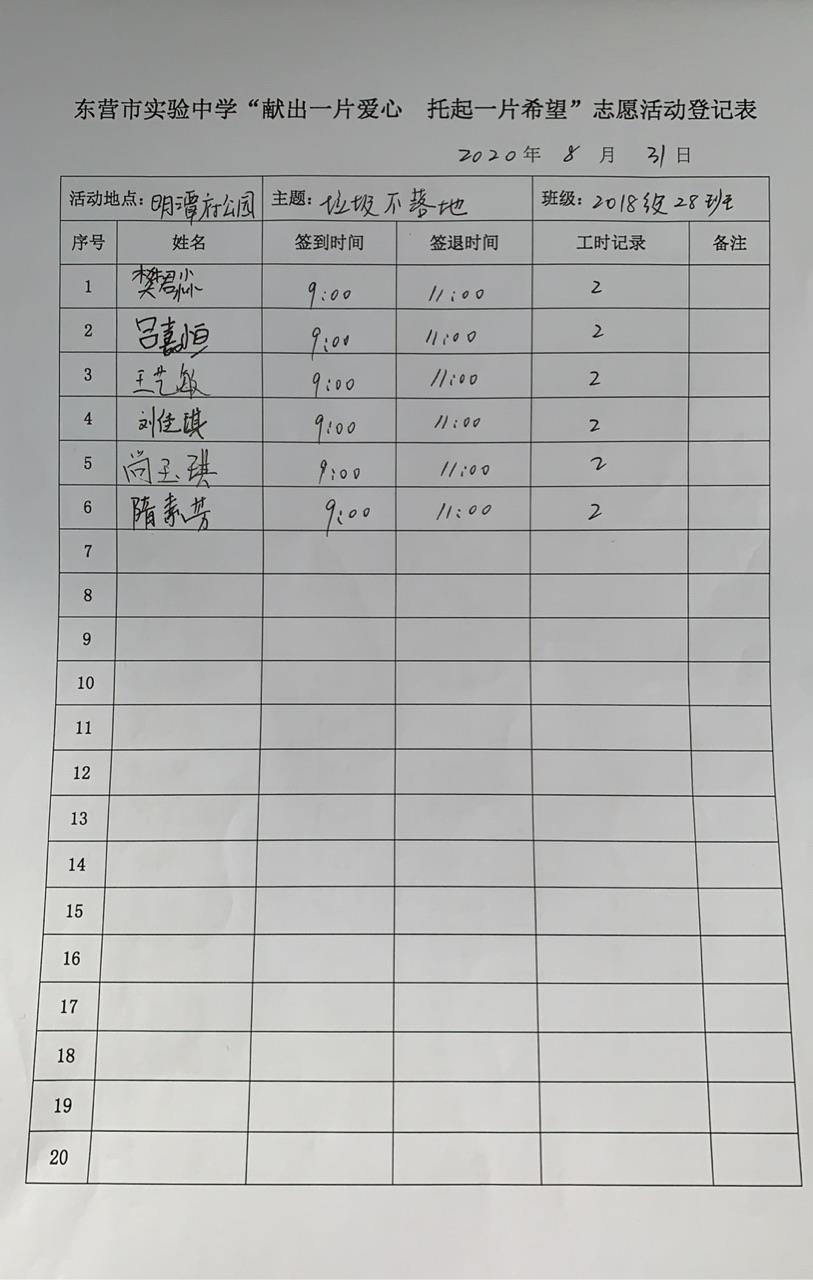 东营市实验中学“献出一片爱心 托起一片希望”志愿活动登记表
2020年 8 月 31日
活动地点：明潭府公园 主题：垃圾不落地 班级：2018级28班
序号 姓名 签到时间 签退时间 工时记录 备注
1 樊君淼 9:00 11:00 2
2 吕嘉恒 9:00 11:00 2
3 王艺敏 9:00 11:00 2
4 刘佳琪 9:00 11:00 2
5 尚玉琪 9:00 11:00 2
6 隋素芳 9:00 11:00 2
7
8
9
10
11
12
13
14
15
16
17
18
19
20